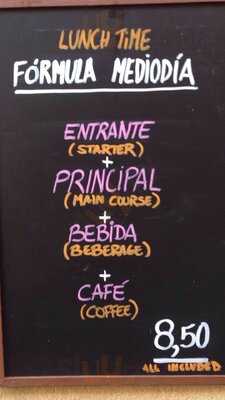 LUNCH TIME
FÓRMULA MEDIODÍA
ENTRANTE
(STARTER)
+
PRINCIPAL
(MAIN COURSE)
+
BEBIDA
(BEBERAGE)
+
CAFÉ
(COFFEE)
8,50
ALL INCLUDED